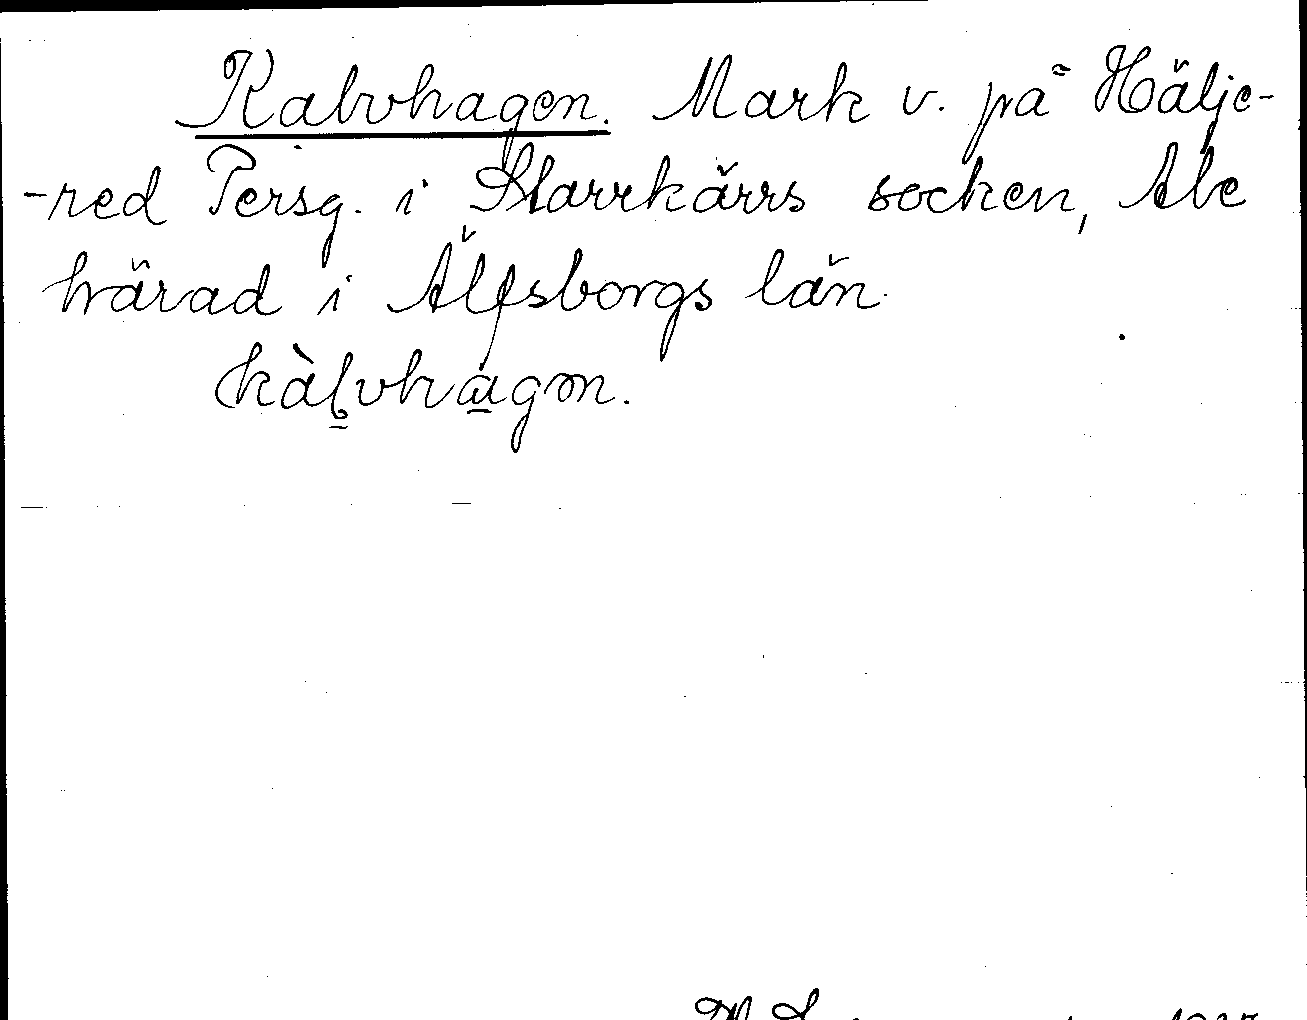 Kalvhagen. Mark v. på Hälje-
-red Persg. i Starrkärrs socken, Ale
härad i Älfsborgs län.
kàl̥vhagɘn.